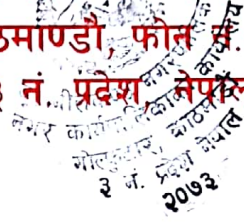 ठमाण्डौ, फोन नं
३ नं. प्रदेश, नेपाल
नगर कार्यपालिकाको कार्यालय
काठमाडौं
३ नं. प्रदेश नेपाल
२०७३